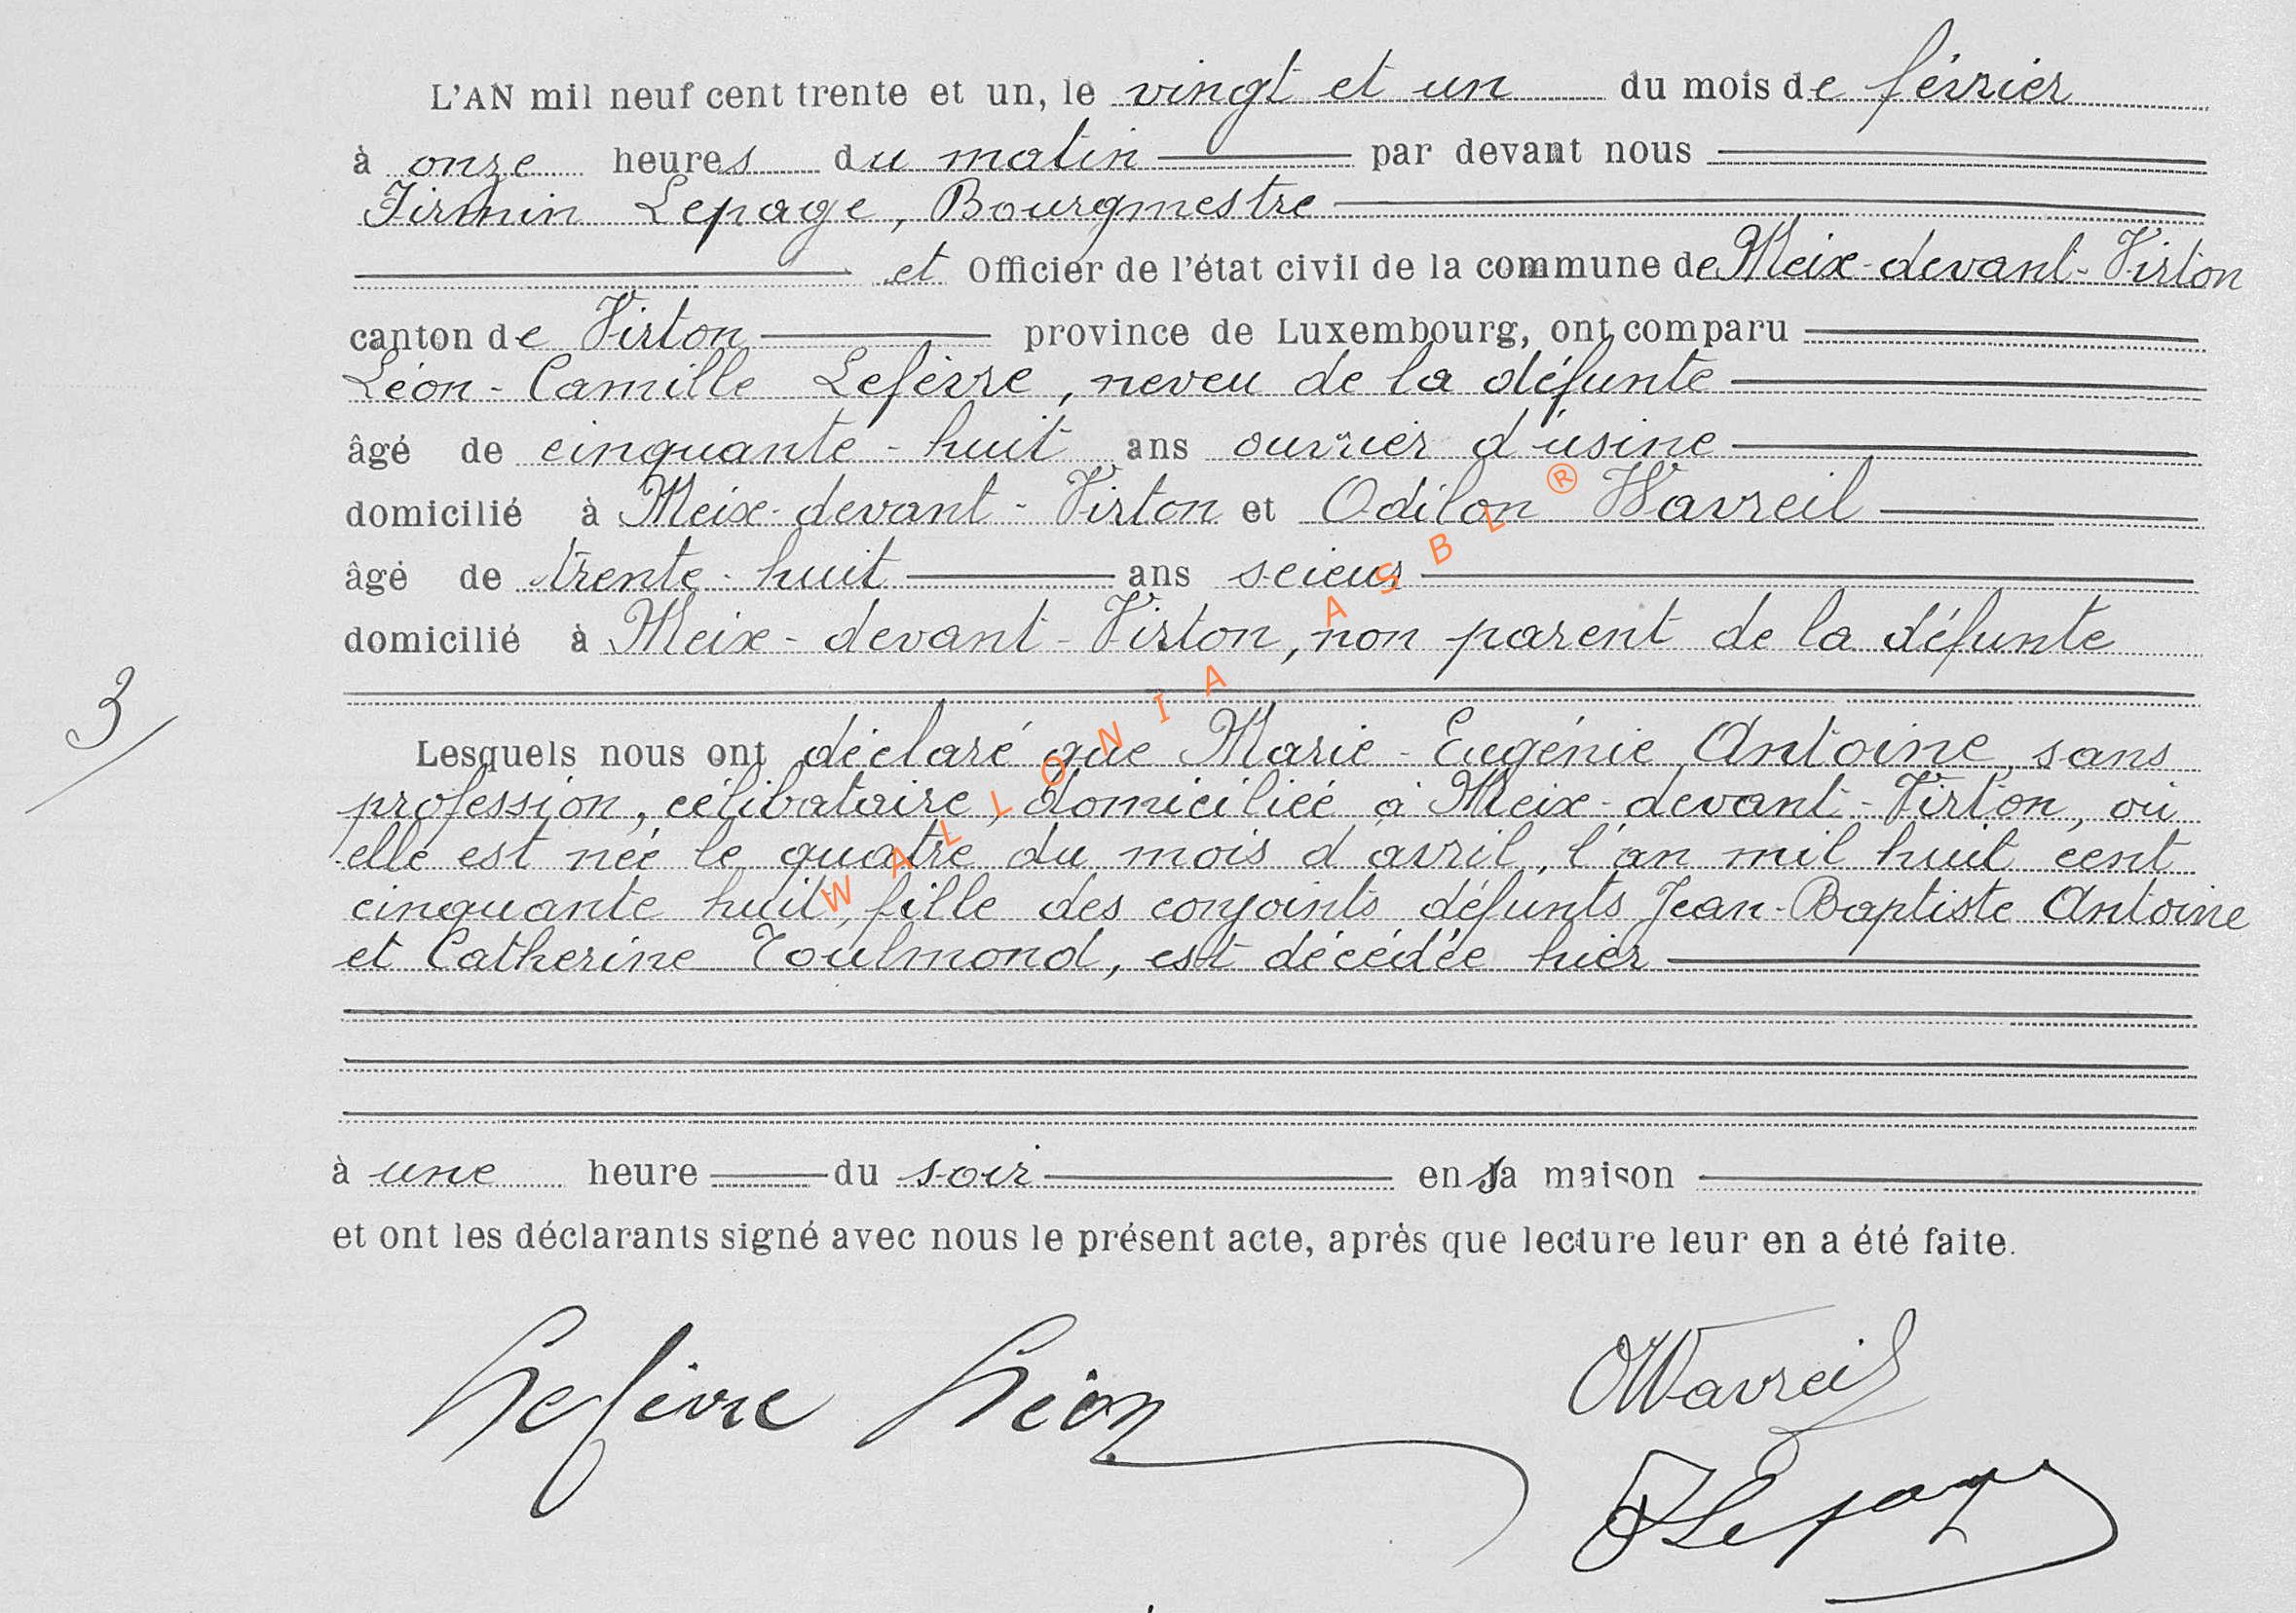 L'AN mil neuf cent trente et un, le vingt et un du mois de février
à onze heures du matin par devant nous
Firmin Lepage, Bourgmestre
et Officier de l'état civil de la commune de Meix-devant-Virton
canton de Virton province de Luxembourg, ont comparu
Léon-Camille Lefèvre, neveu de la défunte
âgé de cinquante-huit ans ouvrier d'usine
domicilié à Meix-devant-Virton et Odilon Wavreil
âgé de trente-huit ans scieur
domicilié à Meix-devant-Virton, non parent de la défunte
3
Lesquels nous ont déclaré que Marie-Eugénie Antoine, sans
profession, célibataire, domiciliée à Meix-devant-Virton, où
elle est née le quatre du mois d'avril, l'an mil huit cent
cinquante huit, fille des conjoints défunts Jean-Baptiste Antoine
et Catherine Toulmond, est décédée hier
à une heure du soir en sa maison
et ont les déclarants signé avec nous le présent acte, après que lecture leur en a été faite.
Lefèvre Léon
OWavreil
FLepage
WALLONIA ASBL ®